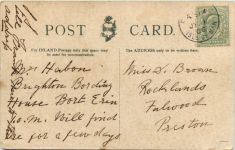 POST CARD.
For INLAND Postage only this space may
be used for communication.
The ADDRESS only to be written here.
Mrs Hubon
Brighton Bording
House Port Erin
I.o.M. Will find
me for a few days
Miss D. Brown
Rocklands
Fulwood
Preston